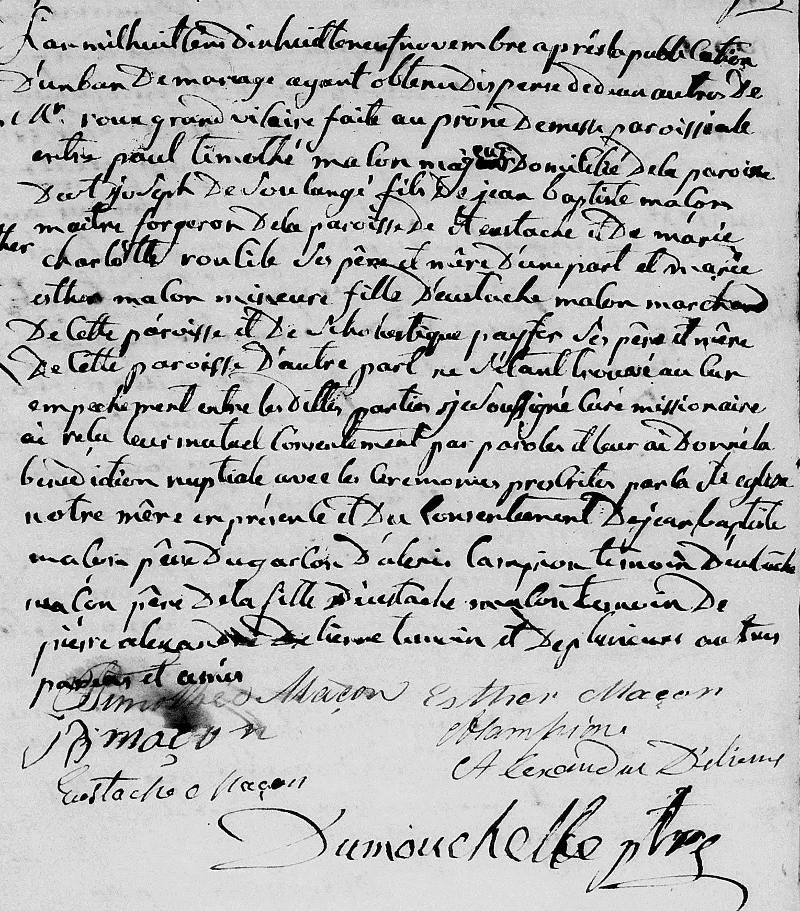 L'an mil huit cens dix huit le neuf novembre après la publication
D'un ban De mariage ayant obtenu dispense de deux autres De
Mr. roux grand vicaire faite au prône De messe paroissiale
entre paul timothé macon majeur Domicilié De la paroisse
De st joseph De Soulange fils De jean baptiste macon
maitre forgeron De la paroisse de st eustache et De marie
charlotte ses père et mère D'une part et marie
esther macon mineure fille D'eustache macon marchand
De cette paroisse et De ses père et mère
De cette paroisse D'autre part ne s'étant trouvé aucun
empechement entre les Dittes parties je soussigné curé missionaire
ai reçu leur mutuel consentement par paroles et leur ai Donné la
bénédiction nuptiale avec les ceremonies prescrites par la ste eglise
notre mère en présence et Du consentement De jean baptiste
macon père Du garcon D'alexis campion temoin D'eustache
macon père De la fille D'eustache macon temoin De
pierre alexandre Delienne temoin et De plusieurs autres
parens et amis
Timothé Maçon Esther Maçon
JB maçon
Eustache Maçon Alexandre D'elienne
Dumouchelle ptre